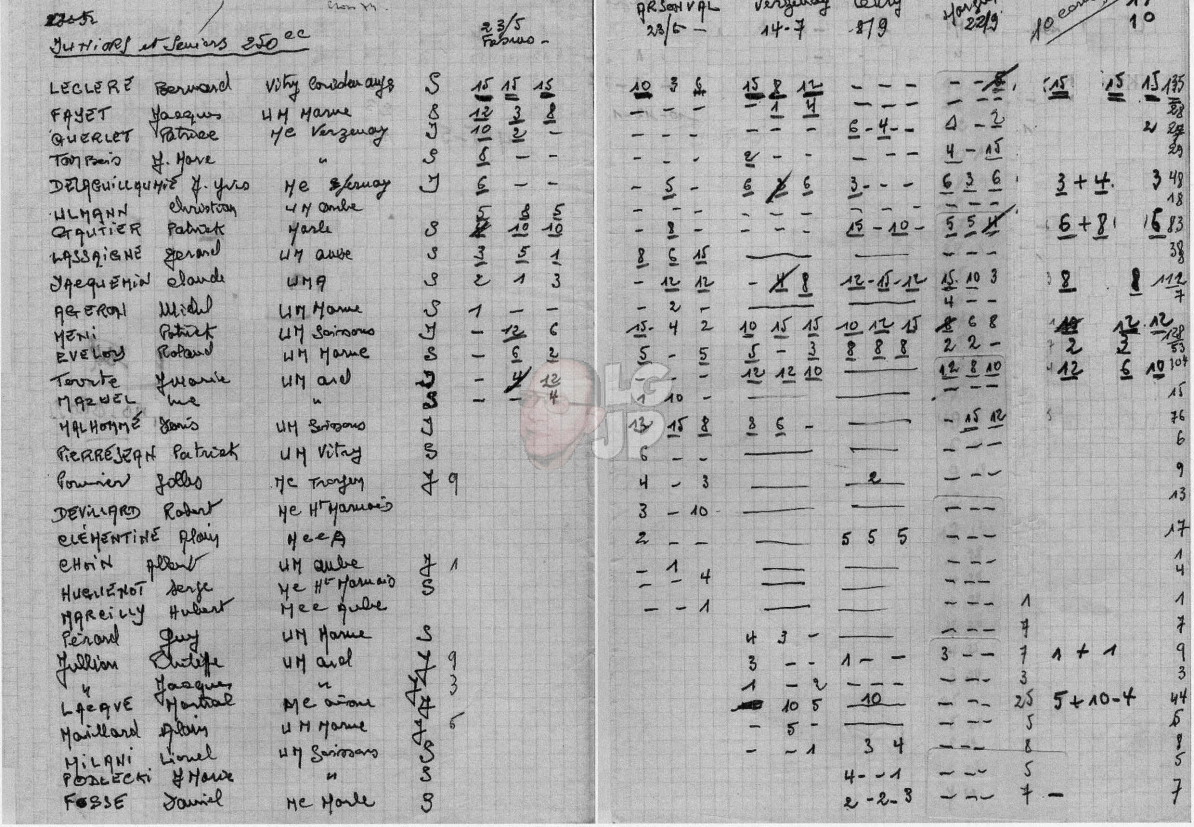 JUNIORS et Seniors 250 cc 23/5
ARSONVAL 23/5 Verzenay 14-7 8/9 22/9 10
LECLERE Bernard Vitry S 15 15 15 10 3 6 15 8 12 - - - - - 15 15 15 135
FAYET Jacques UM Marne S 12 3 8 - - - - 1 4 - - - - - - 28
QUERLET Patrice MC Verzenay J 10 2 - - - - - - - 6 - 4 - - - 2 2
J. Marc " S - - - - - 2 - - - - - 4 - 15 29
DELAGUILLAUMIE J. Yves MC Epernay J 6 - - - 5 - 6 6 3 - - - 6 3 6 3 + 4 3 48
ULMANN Christian UM aube 5 8 5 - - - - - - - - - - - - 18
GAUTIER Patrick Marle S 10 10 - 8 - - - - 15 - 10 - 5 5 6 + 8 83
LASSAIGNE Gerard UM aube S 3 5 1 8 6 15 38
JACQUEMIN Claude UMA S 2 1 3 - 12 12 - 4 8 12 - 15 - 12 15 10 3 8 8 112
AGERON Michel UM Marne S 1 - - - 2 - 4 - - 7
MENI Patrick UM Soissons J - 12 6 15 - 4 2 10 15 15 10 12 15 8 6 8 12 12 128
EVELOY Roland UM Marne S - 6 2 5 - 5 5 - 3 8 8 8 2 2 - 2 3 53
Tourte J Marie UM ard - 4 12 - - - 12 12 10 12 8 10 12 6 10 104
MAZUEL Luc " S - - 4 1 10 - - - - 15
MALHOMME Denis UM Soissons J 15 8 8 6 - - 15 12 76
PIERREJEAN Patrick UM Vitry S 6 - - - - - 6
Gilles MC J 9 4 - 3 2 - - - 9
DEVILLARD Robert MC Ht Marnais 3 - 10 - - - 13
CLÉMENTINE Alain MCCA 2 - - 5 5 5 17
CHOIN Albert UM aube J 1 - 1 - - - - 1
HUGUENOT Serge MC Ht Marnais S - - 4 - - - 4
MARCILLY Hubert MCC Aube - - 1 - - - 1 1
Pérard Guy UM Marne S 4 3 - - - - 7 7
Jullion Philippe UM ard 9 3 - - 1 - - 3 - - 7 1 + 1 9
" Jacques " 3 1 - 2 - - - 3 3
LACAVE Martial MC aisne J 10 5 10 - - - 25 5 + 10 - 4 44
Maillard Alain UM Marne - 5 - - - - 5 5
MILANI Lionel UM Soissons S - - 1 3 4 - - - 8 8
PODLECKI J Marie " S 4 - - 1 - - - 5 5
FOSSE Daniel MC Marle S 2 - 2 - 3 - - - 7 - 7
LG
JP